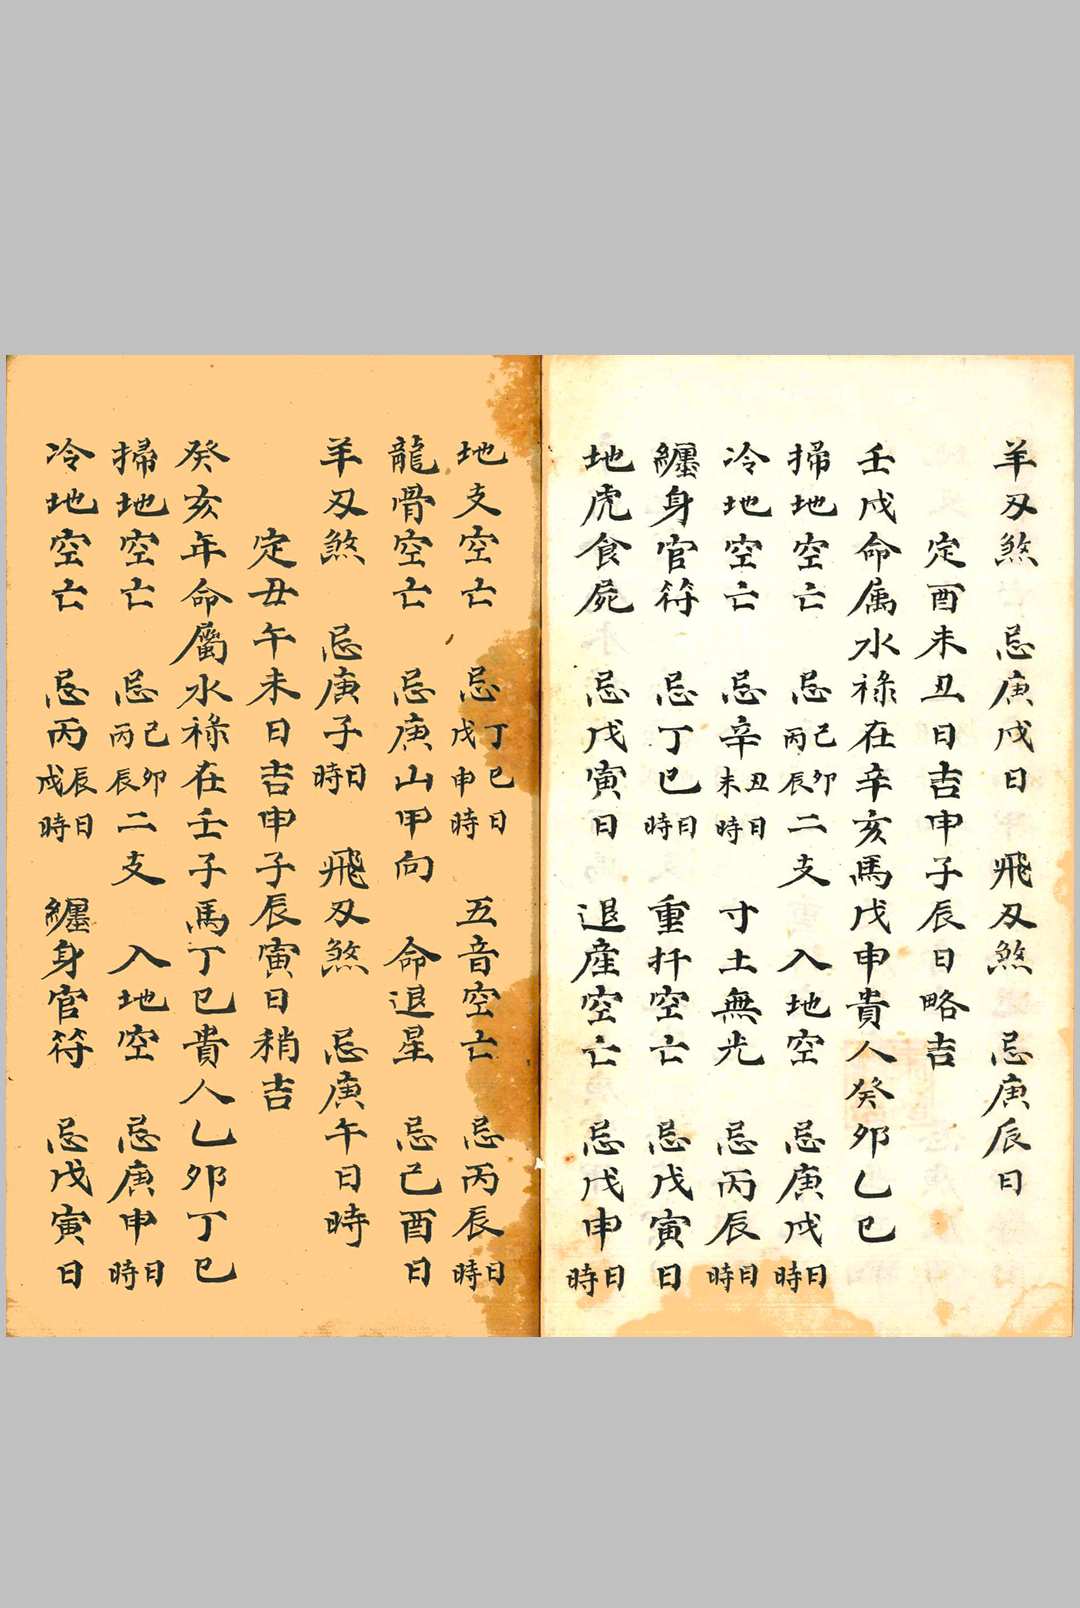 羊刃煞　忌庚戌日　飛刃煞　忌庚辰日
定酉未丑日吉申子辰日略吉
壬戌命属水祿在辛亥馬戊申貴人癸卯乙巳
掃地空亡　忌己卯丙辰二支　入地空　忌庚戌日時
冷地空亡　忌辛丑未日時　寸土無光　忌丙辰日時
纏身官符　忌丁巳日時　重扦空亡　忌戊寅日
地虎食屍　忌戊寅日　退産空亡　忌戊申日時
地支空亡　忌丁巳戊申日時　五音空亡　忌丙辰日時
龍骨空亡　忌庚山甲向　命退星　忌己酉日
羊刃煞　忌庚子日時　飛刃煞　忌庚午日時
定丑午未日吉申子辰寅日稍吉
癸亥年命屬水祿在壬子馬丁巳貴人乙卯丁巳
掃地空亡　忌己卯丙辰二支　入地空　忌庚申日時
冷地空亡　忌丙辰戌日時　纏身官符　忌戊寅日